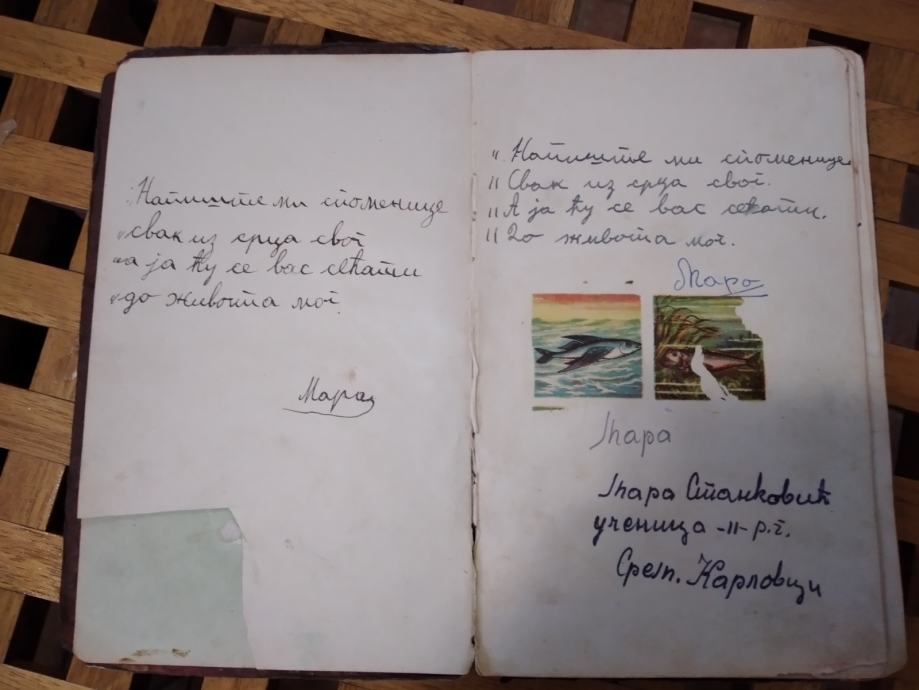 Напиште ми споменице
"свак из срца свог
"а ја ћу се вас сећати
"до живота мог.
Мара
"Напиште ми споменице
"Свак из срца свог.
"А ја ћу се вас сећати.
"До живота мог.
Маро
Мара
Мара Станковић
ученица -II- р.г.
Срем. Карловци